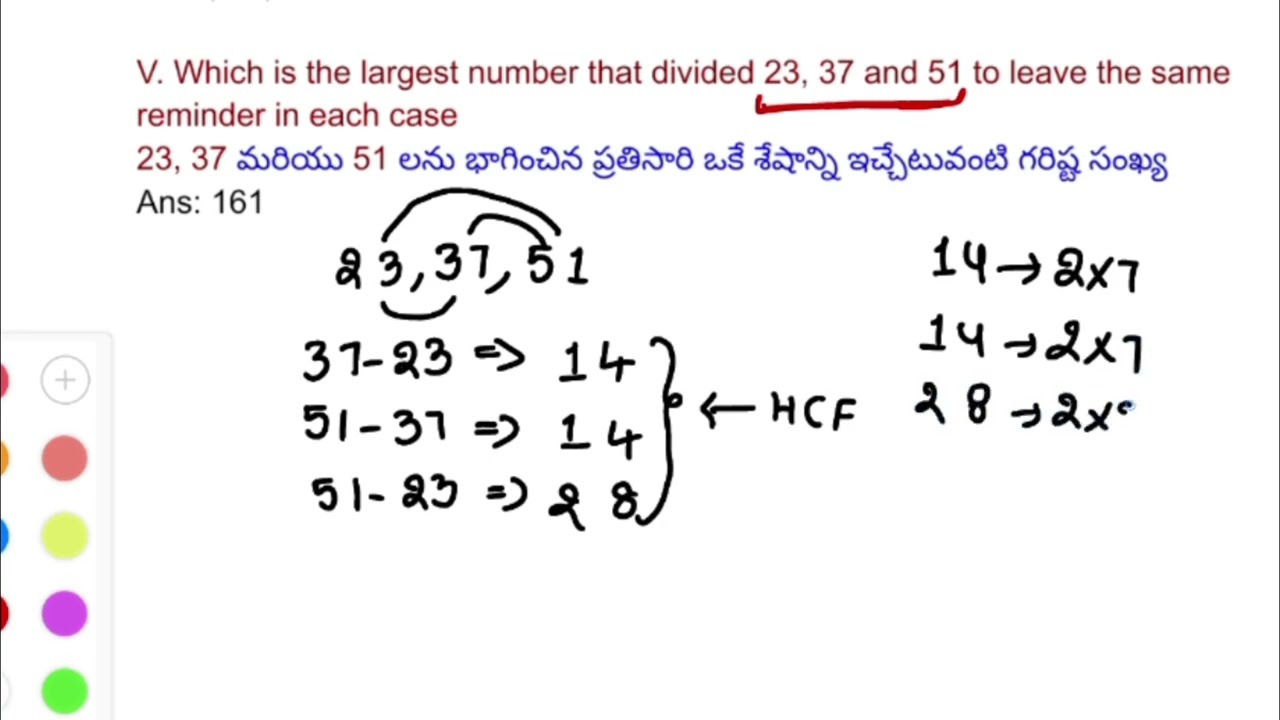 V. Which is the largest number that divided 23, 37 and 51 to leave the same
reminder in each case
23, 37 మరియు 51 లను భాగించిన ప్రతిసారి ఒకే శేషాన్ని ఇచ్చేటువంటి గరిష్ట సంఖ్య
Ans: 161
23, 37, 51
37-23 => 14
51-37 => 14
51-23 => 28
← HCF
14 → 2x7
14 → 2x7
28 → 2x